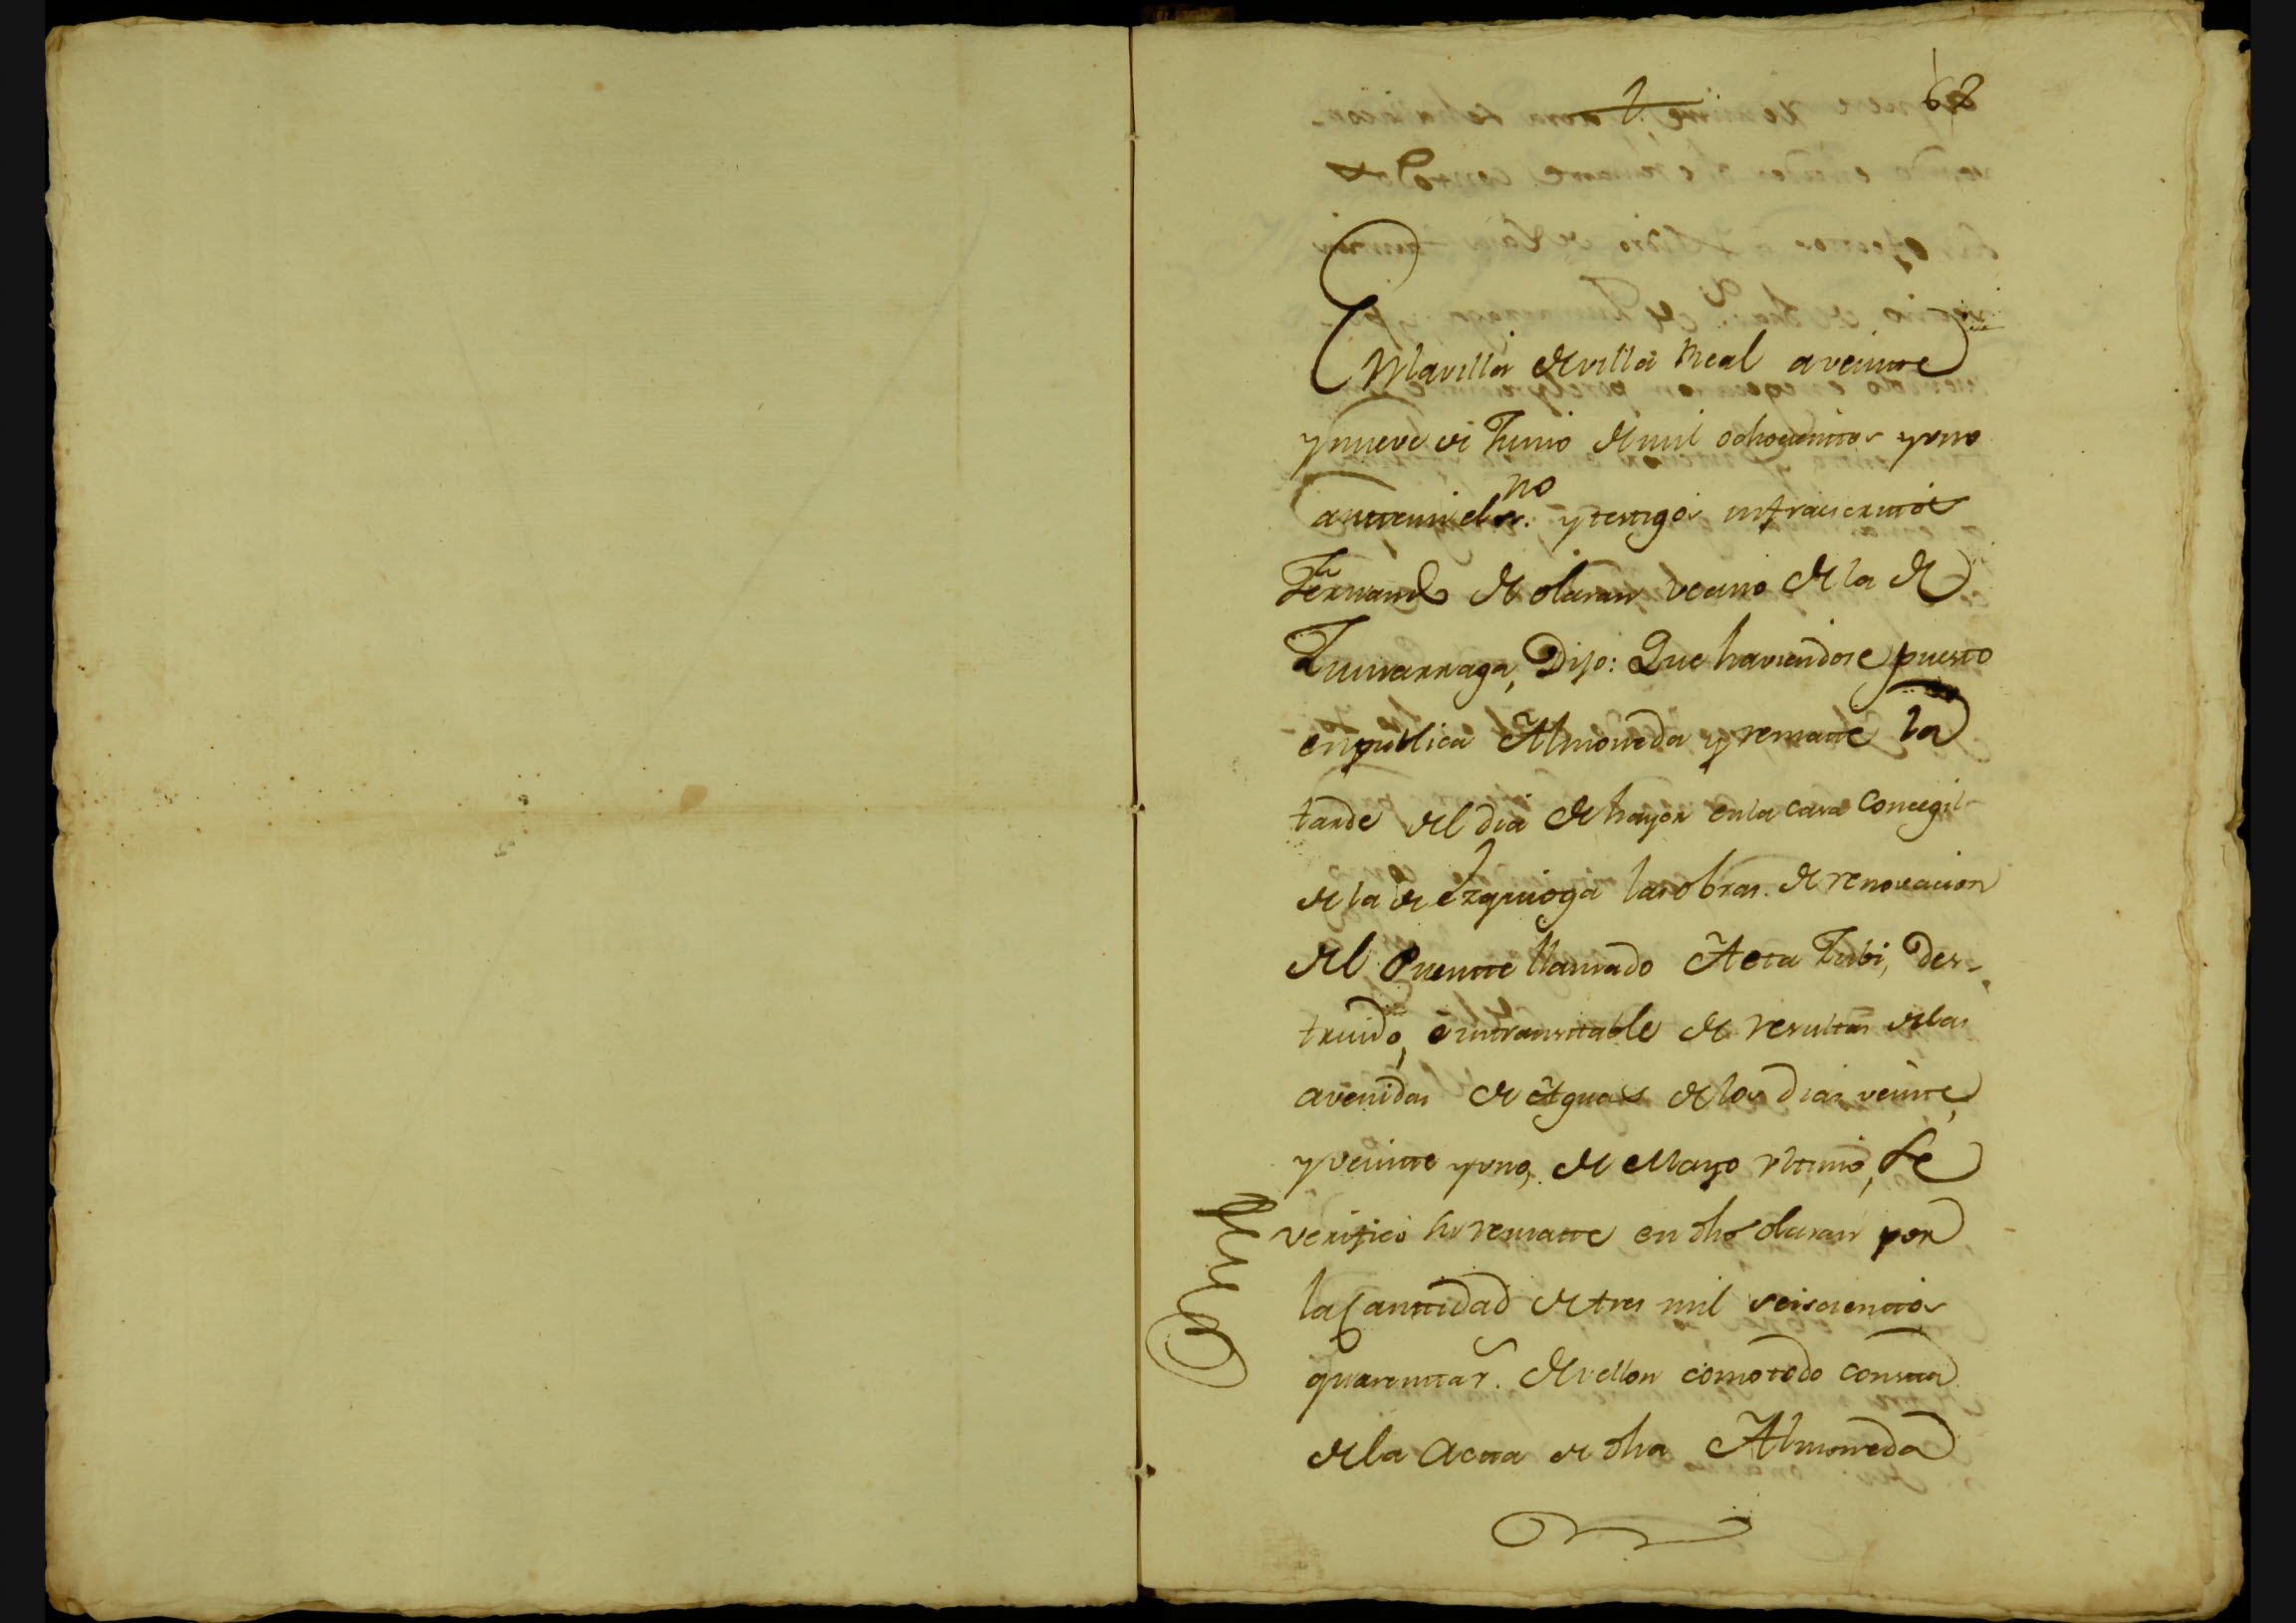 68
En la villa de villa Real a veinte
y nueve de Junio de mil ochocientos y uno
ante mi el s.no y testigos infraescritos
Fernando de olaran vecino de la de
Zumarraga, Dijo: Que haviendose puesto
en publica Almoneda y remate la
tarde del dia de hayer en la casa Concegil
de la de Ezquioga las obras de renovacion
del Puente llamado Aeta Zubi, des-
truido, é intransitable de resultas de las
avenidas de Aguas de los dias veinte,
y veinte y uno, de Mayo vltimo, se
verificó su remate en dho olaran por
la Cantidad de tres mil seiscientos
quarenta r.s de vellon como todo consta
de la Acta de dha Almoneda